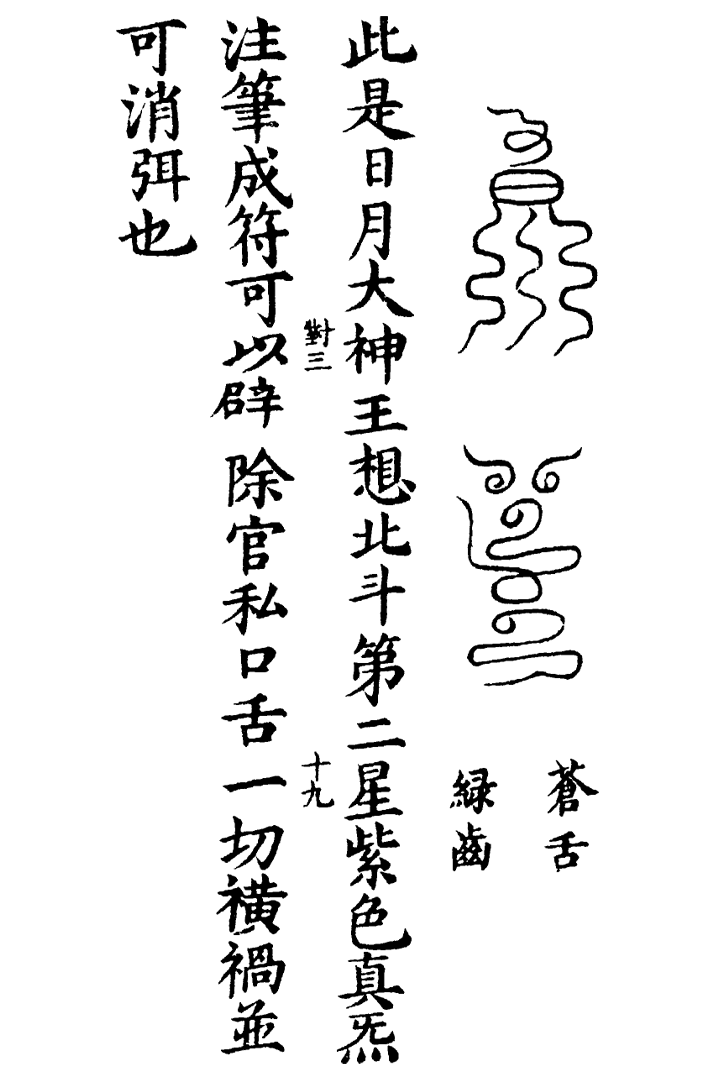 蒼舌
緑齒
此是日月大神王想北斗第二星紫色真炁
對三
十九
注筆成符可以辟除官私口舌一切横禍並
可消弭也